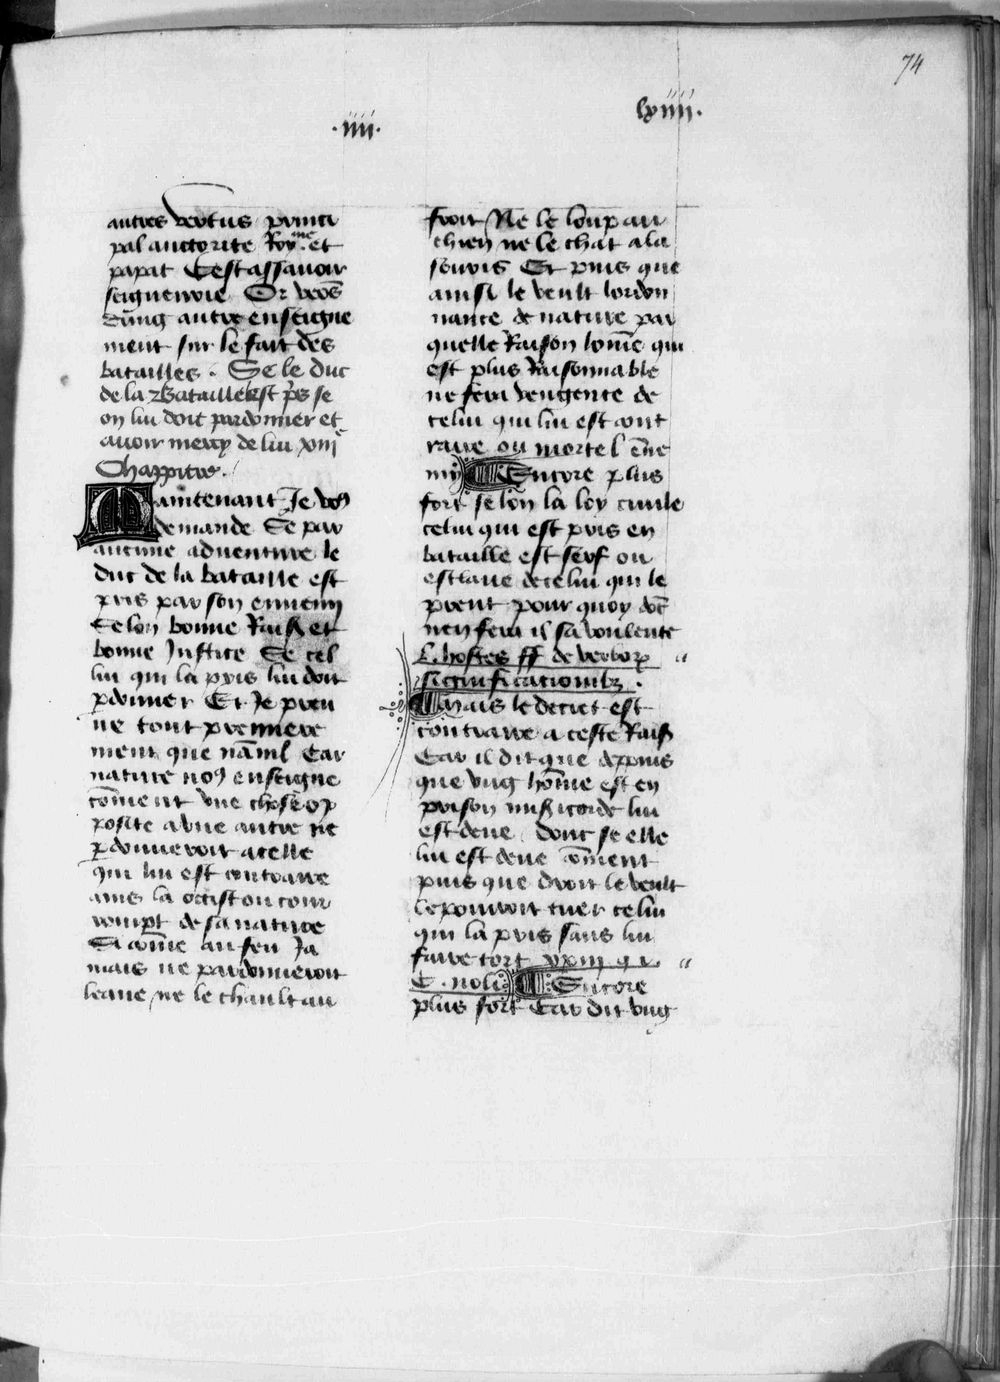 74
.iiii.
lxiiii.
autres vertus princi
pal auctorite Roy.me et
papat Cest assauoir
seigneurie Or veōs
dūng autre enseigne
ment sur le fait des
batailles . Se le duc
de la Bataille est p̄s se
on lui doit pardonner et
auoir mercy de lui xiij
Chappitre.
Maintenant Je vo9
demande Se par
aucune aduenture le
duc de la bataille est
pris par son ennemy
Selon bonne Raisō et
bonne Justice Se cel
lui qui la pris lui doit
pdonner Et Je preu
ue tout premiere
ment que nānil Car
nature no9 enseigne
cōment vne chose op
posite a vne autre ne
pdonneroit a celle
qui lui est contraire
ains la occist ou cour
rompt de sa nature
Si cōme au feu Ja
mais ne pardonneroit
leaue ne le chault au
froit Ne le loup au
chien ne le chat a la
souris Et puis que
ainsi le veult lordon
nance de nature par
quelle Raison lomē qui
est plus Raisonnable
ne fera vengence de
celui qui lui est cont
raire ou mortel ēne
my Encore plus
fort selon la loy ciuile
celui qui est pris en
bataille est serf ou
esclaue de celui qui le
prent pour quoy dōc
nen fera il sa voulente
L. hostes ff de verbor
significationibz .
Mais le decret est
contraire a ceste Raisō
Car il dit que depuis
que vng hōme est en
prison misericorde lui
est deue donc se elle
lui est deue cōment
puis que droit le veult
le pourroit tuer celui
qui la pris sans lui
faire tort xxiij q i.
C . noli Encore
plus fort Car dit vng